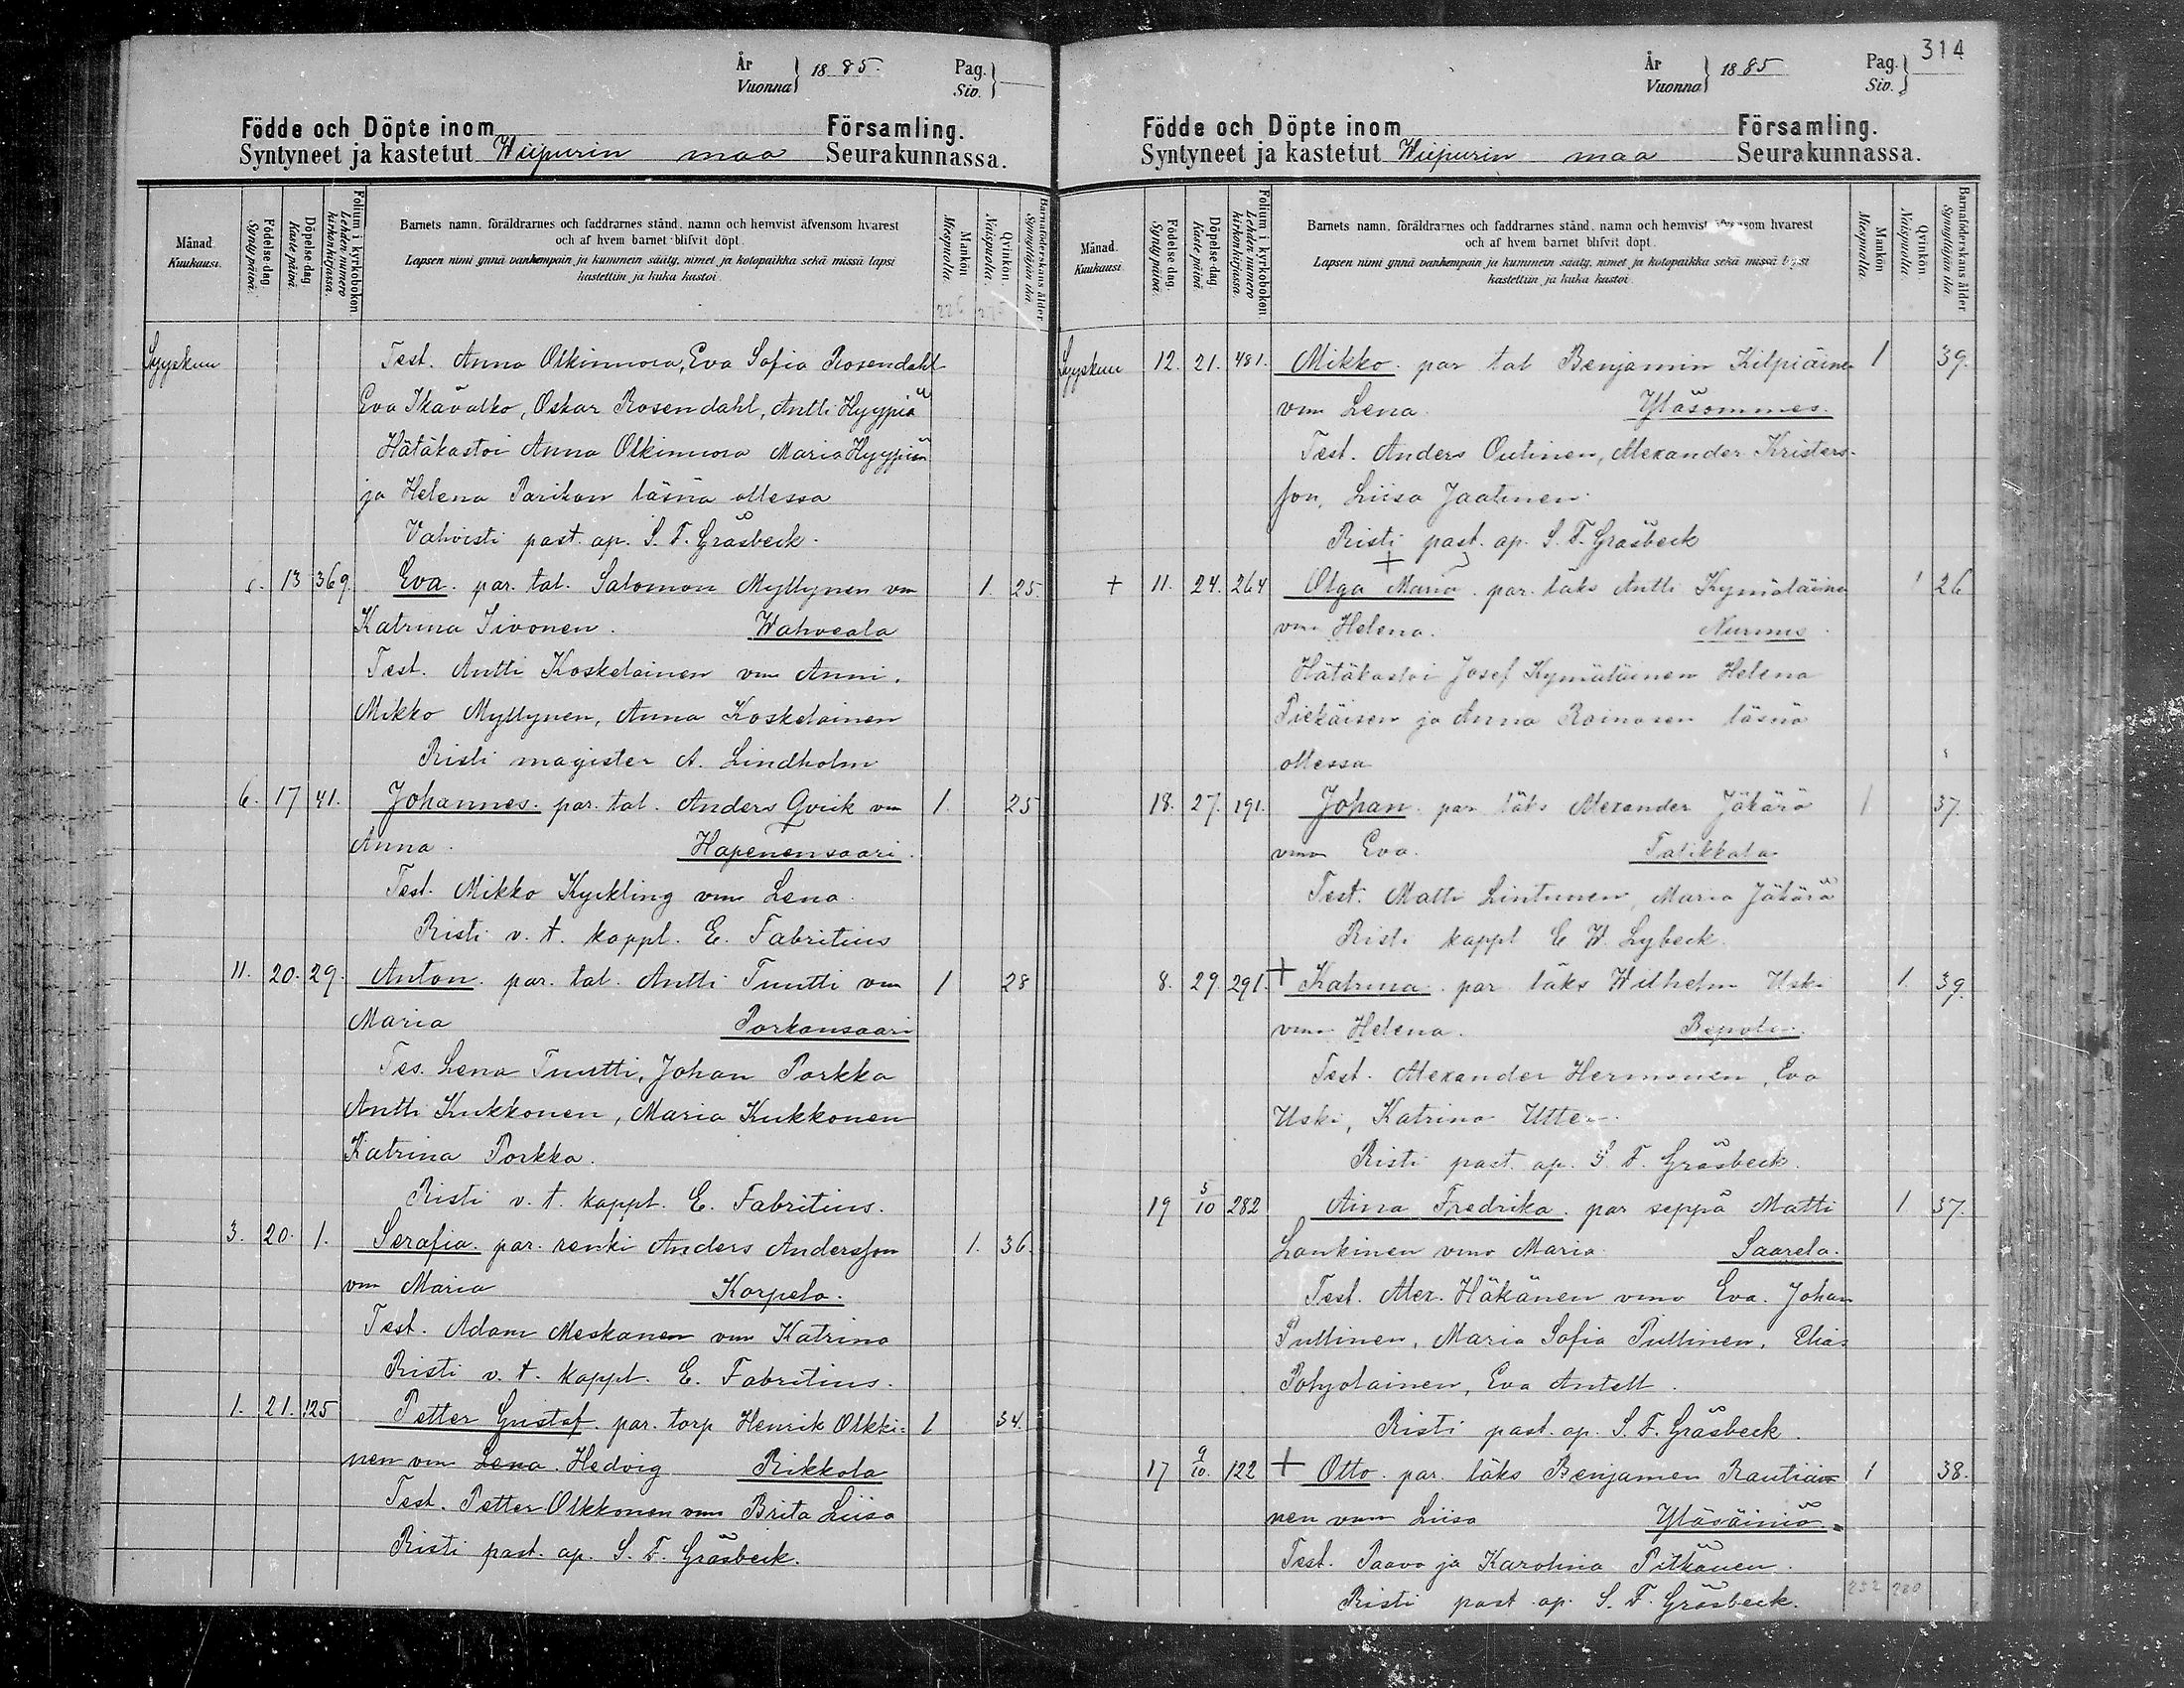 År
Vuonna } 1885.
Pag.
Siv. }
Födde och Döpte inom Församling.
Syntyneet ja kastetut Wiipurin maa Seurakunnassa.
Månad.
Kuukausi.
Födelse dag.
Synty päivä.
Döpelse dag.
Kaste päivä.
Folium i kyrkoboken
Lehden numero
kirkonkirjassa.
Barnets namn, föräldrarnes och faddrarnes stånd, namn och hemvist äfvensom hvarest
och af hvem barnet blifvit döpt.
Lapsen nimi ynnä vanhempain ja kummein sääty, nimet ja kotopaikka sekä missä lapsi
kastettiin ja kuka kastoi.
Mankön
Miespuolia.
Qvinkön.
Naispuolia.
Barnaföderskans ålder
Synnyttäjän ikä
Syyskuu Test. Anna Olkinuora, Eva Sofia Rosendahl
Eva Ikävalko, Oskar Rosendahl, Antti Hyypiä
Hätäkastoi Anna Olkinuora Maria Hyypiän
ja Helena Parikan läsnä ollessa
Vahvisti past. ap. S. F. Gräsbeck.
6. 13 369 Eva. par. tal. Salomon Myllynen vm 1. 25.
Katrina Iivonen. Wahveala
Test. Antti Koskelainen vm Anni.
Mikko Myllynen, Anna Koskelainen
Risti magister A. Lindholm
6. 17 41. Johannes. par. tal. Anders Qvick vm 1. 25
Anna. Hapenensaari.
Test. Mikko Kyckling vm Lena.
Risti v. t. kappl. E. Fabritius
11. 20. 29. Anton. par. tal. Antti Tuutti vm 1 28
Maria Porkansaari
Tes. Lena Tuutti, Johan Porkka
Antti Kukkonen, Maria Kukkonen
Katrina Porkka.
Risti v. t. kappl. E. Fabritius.
3. 20. 1. Serafia. par. renki Anders Andersson 1. 36.
vm Maria Korpela.
Test. Adam Meskanen vm Katrina
Risti v. t. kappl. E. Fabritius.
1. 21. 125 Petter Gustaf. par. torp Henrik Olkki= 1 34.
nen vm Lena. Hedvig Rikkola
Test. Petter Olkkonen vm Brita Liisa
Risti past. ap. S. F. Gräsbeck.
314
År
Vuonna } 1885
Pag.
Siv. }
Födde och Döpte inom Församling.
Syntyneet ja kastetut Wiipurin maa Seurakunnassa.
Månad.
Kuukausi
Födelse dag.
Synty päivä.
Döpelse dag.
Kaste päivä.
Folium i kyrkoboken
Lehden numero
kirkonkirjassa.
Barnets namn, föräldrarnes och faddrarnes stånd, namn och hemvist äfvensom hvarest
och af hvem barnet blifvit döpt.
Lapsen nimi ynnä vanhempain ja kummein sääty, nimet ja kotopaikka sekä missä lapsi
kastettiin ja kuka kastoi.
Mankön
Miespuolia.
Qvinkön
Naispuolia.
Barnaföderskans ålder
Synnyttäjän ikä
Syyskuu 12. 21. 481. Mikko. par tal Benjamin Kilpiäinen 1 39.
vm Lena. Yläsommee.
Test. Anders Outinen, Alexander Kristers-
son, Liisa Jaatinen.
Risti past. ap. S. F. Gräsbeck
+ 11. 24. 264 Olga Maria. par. läks Antti Kymäläinen 1 26
vm Helena. Nurmis
Hätäkastoi Josef Kymäläinen Helena
Piekäisen ja Anna Roinasen läsnä
ollessa
18. 27. 191. Johan. par läks Alexander Jäkärä 1 37.
vmo Eva. Talikkala
Test. Matti Lintunen, Maria Jäkärä
Risti kappl E W. Lybeck.
8. 29. 291. + Katrina. par läks Wilhelm Uski 1. 39.
vmo Helena. Repola.
Test. Alexander Hermonen, Eva
Uski, Katrina Utter.
Risti past. ap. S. F. Gräsbeck.
19 5/10 282 Aina Fredrika. par seppä Matti 1 37.
Lankinen vmo Maria. Saarela.
Test. Alex. Häkänen vmo Eva. Johan
Pullinen, Maria Sofia Pullinen, Elias
Pohjolainen, Eva Antell.
Risti past. ap. S. F. Gräsbeck.
17 9/10. 122 + Otto. par. läks Benjamen Rautiai= 1 38.
nen vm Liisa Yläsäiniö.
Test. Paavo ja Karolina Pitkänen.
Risti past ap. S. F. Gräsbeck.
232 280